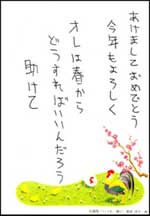 あけまして おめでとう
今年もよろしく
オレは春から
どうすればいいんだろう
助けて